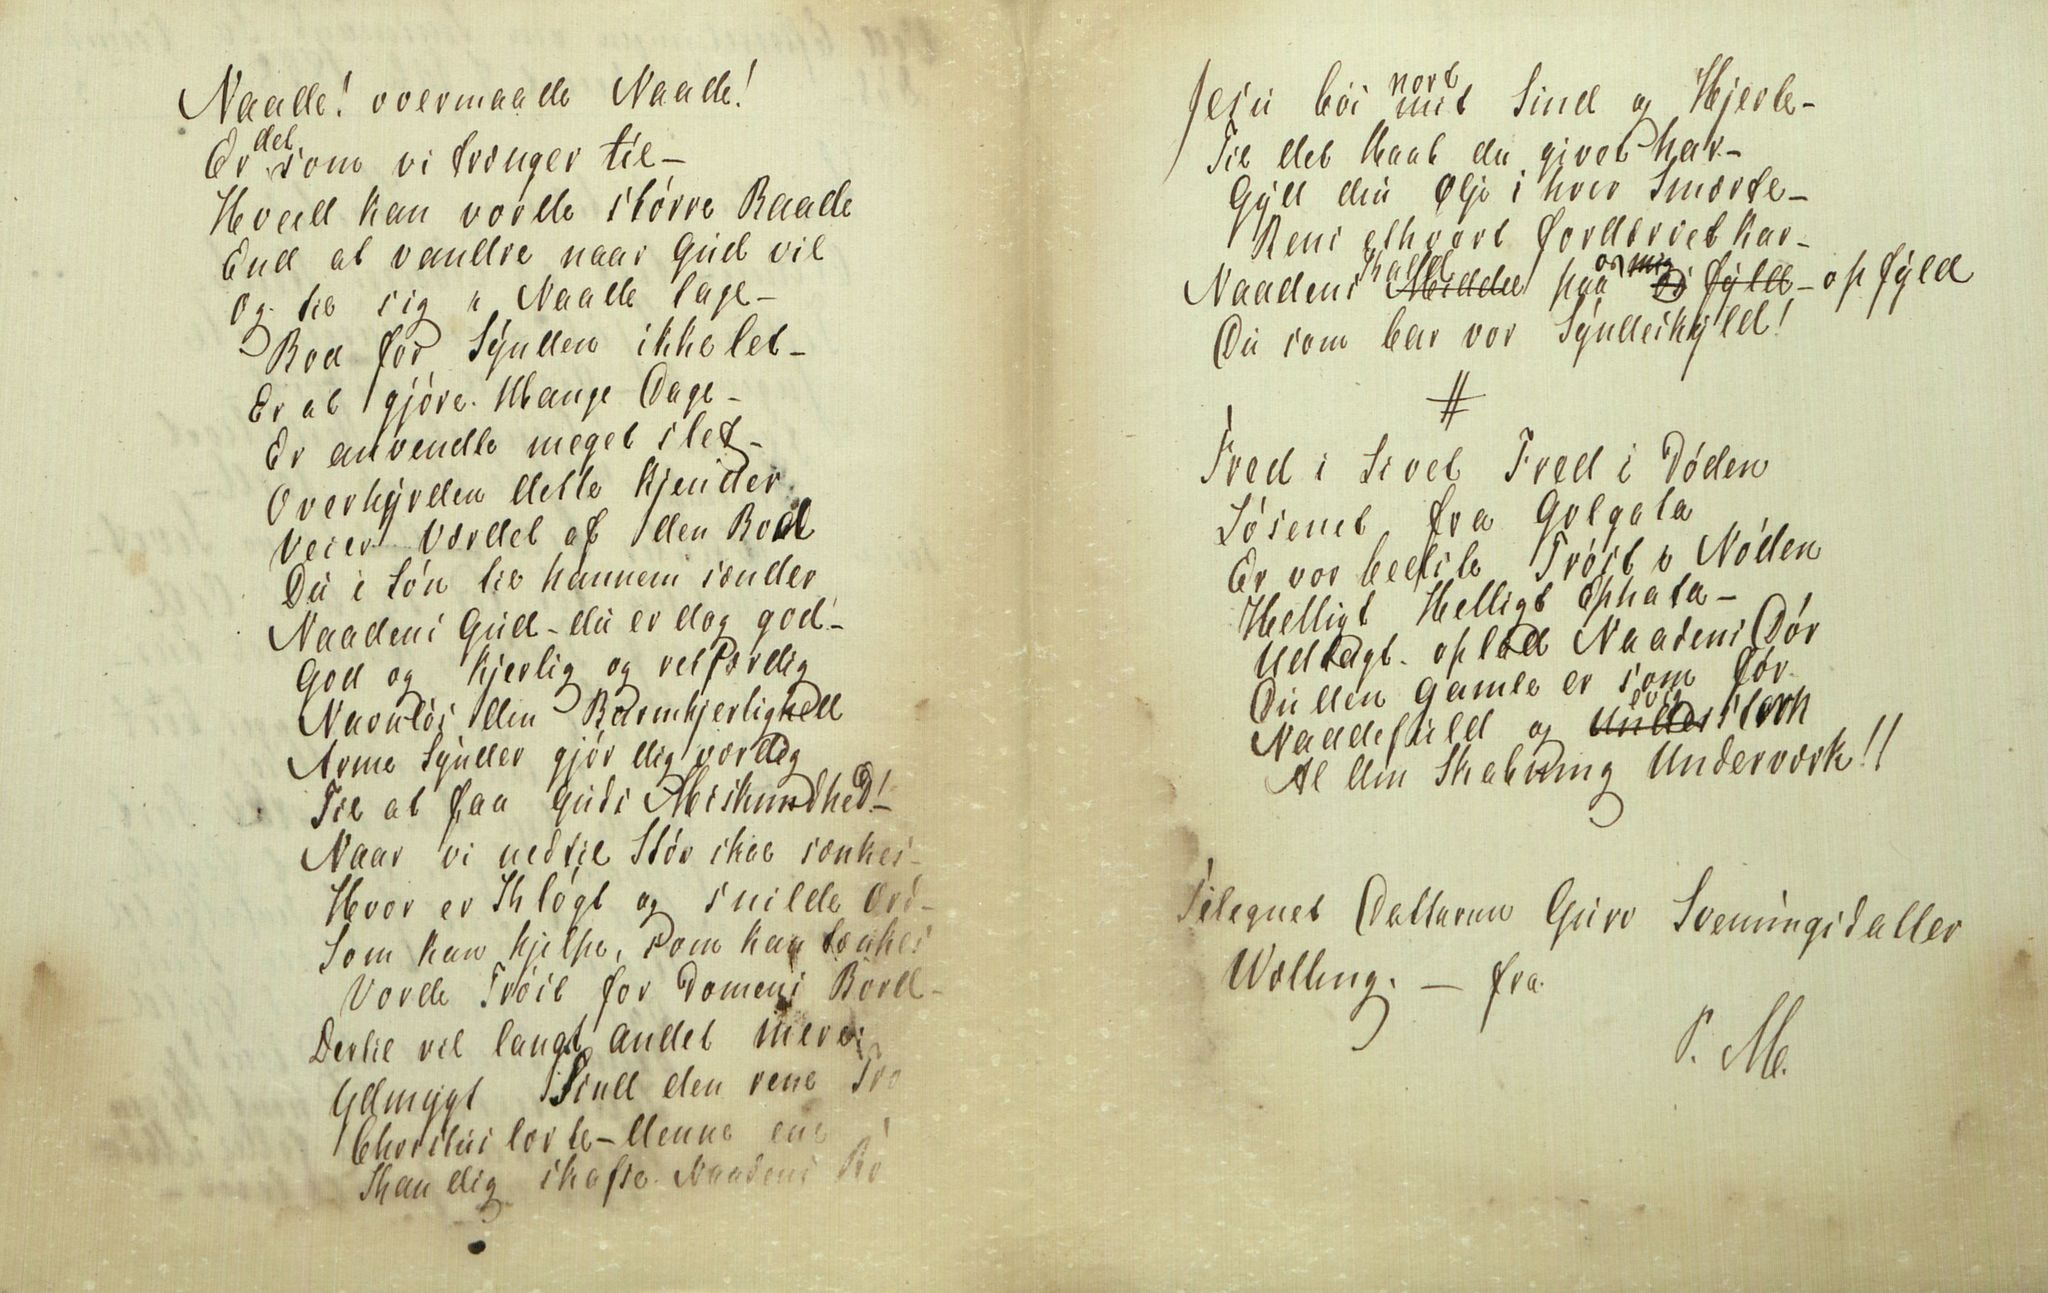 Naade! overmaade Naade!
Er det som vi trænger til-
Hvad kan vorde större Baade
End at vandre naar Gud vil
Og til sig i Naade tage-
Bod for Synden ikke let-
Er at gjöre. Mange Dage-
Er anvendte meget slet-
Overhyrden dette kjender
Veier Værdet af den Bod
Du i Lön til hannem sender
Naadens Gud-du er dog god-
God og kjerlig og retfærdig
Navnlös din Barmhjertighed
Arme Synder gjör dig værdig
Til at faa Guds Miskundhed!-
Naar vi ned til Stöv skal sænkes-
Hvor er Klögt og snilde Ord-
Som kan hjelpe, som kan tænkes
Vorde Tröst for Domens Bord-
Dertil vil langt andet mere
Ydmygt Sind den rene Tro
Christus lærte-denne ene
Kan dig skaffe Naadens Ro
Jesu böi vort mit Sind og Hjerte-
Til det Haab du givet har-
Gyd din Olje i hver Smærte-
Rens ethvert fordærvet Kar-
Naadens Kald Middel paa os mig os fyld-opfyld
Du som bar vor Syndeskyld!
#
Fred i Livet Fred i Döden
Lösenet fra Golgata
Er vor bedste Tröst i Nöden
Helligt Helligt Ephata-
Udsagt. oplad Naadens Dör
Du den gamle er som för
Naadefuld og evig Under stærk
Al din Skabning Underværk!!
Tilegnet Datteren Guro Sveningsdatter
Wølling. - fra.
P. M.